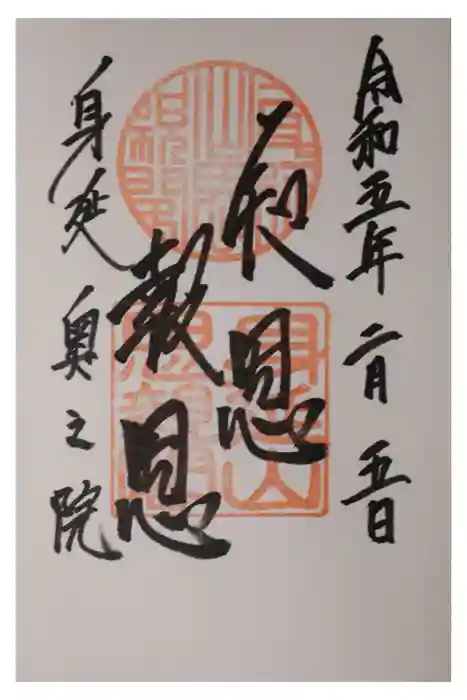 令和五年二月五日
知恩
報恩
身延奥之院